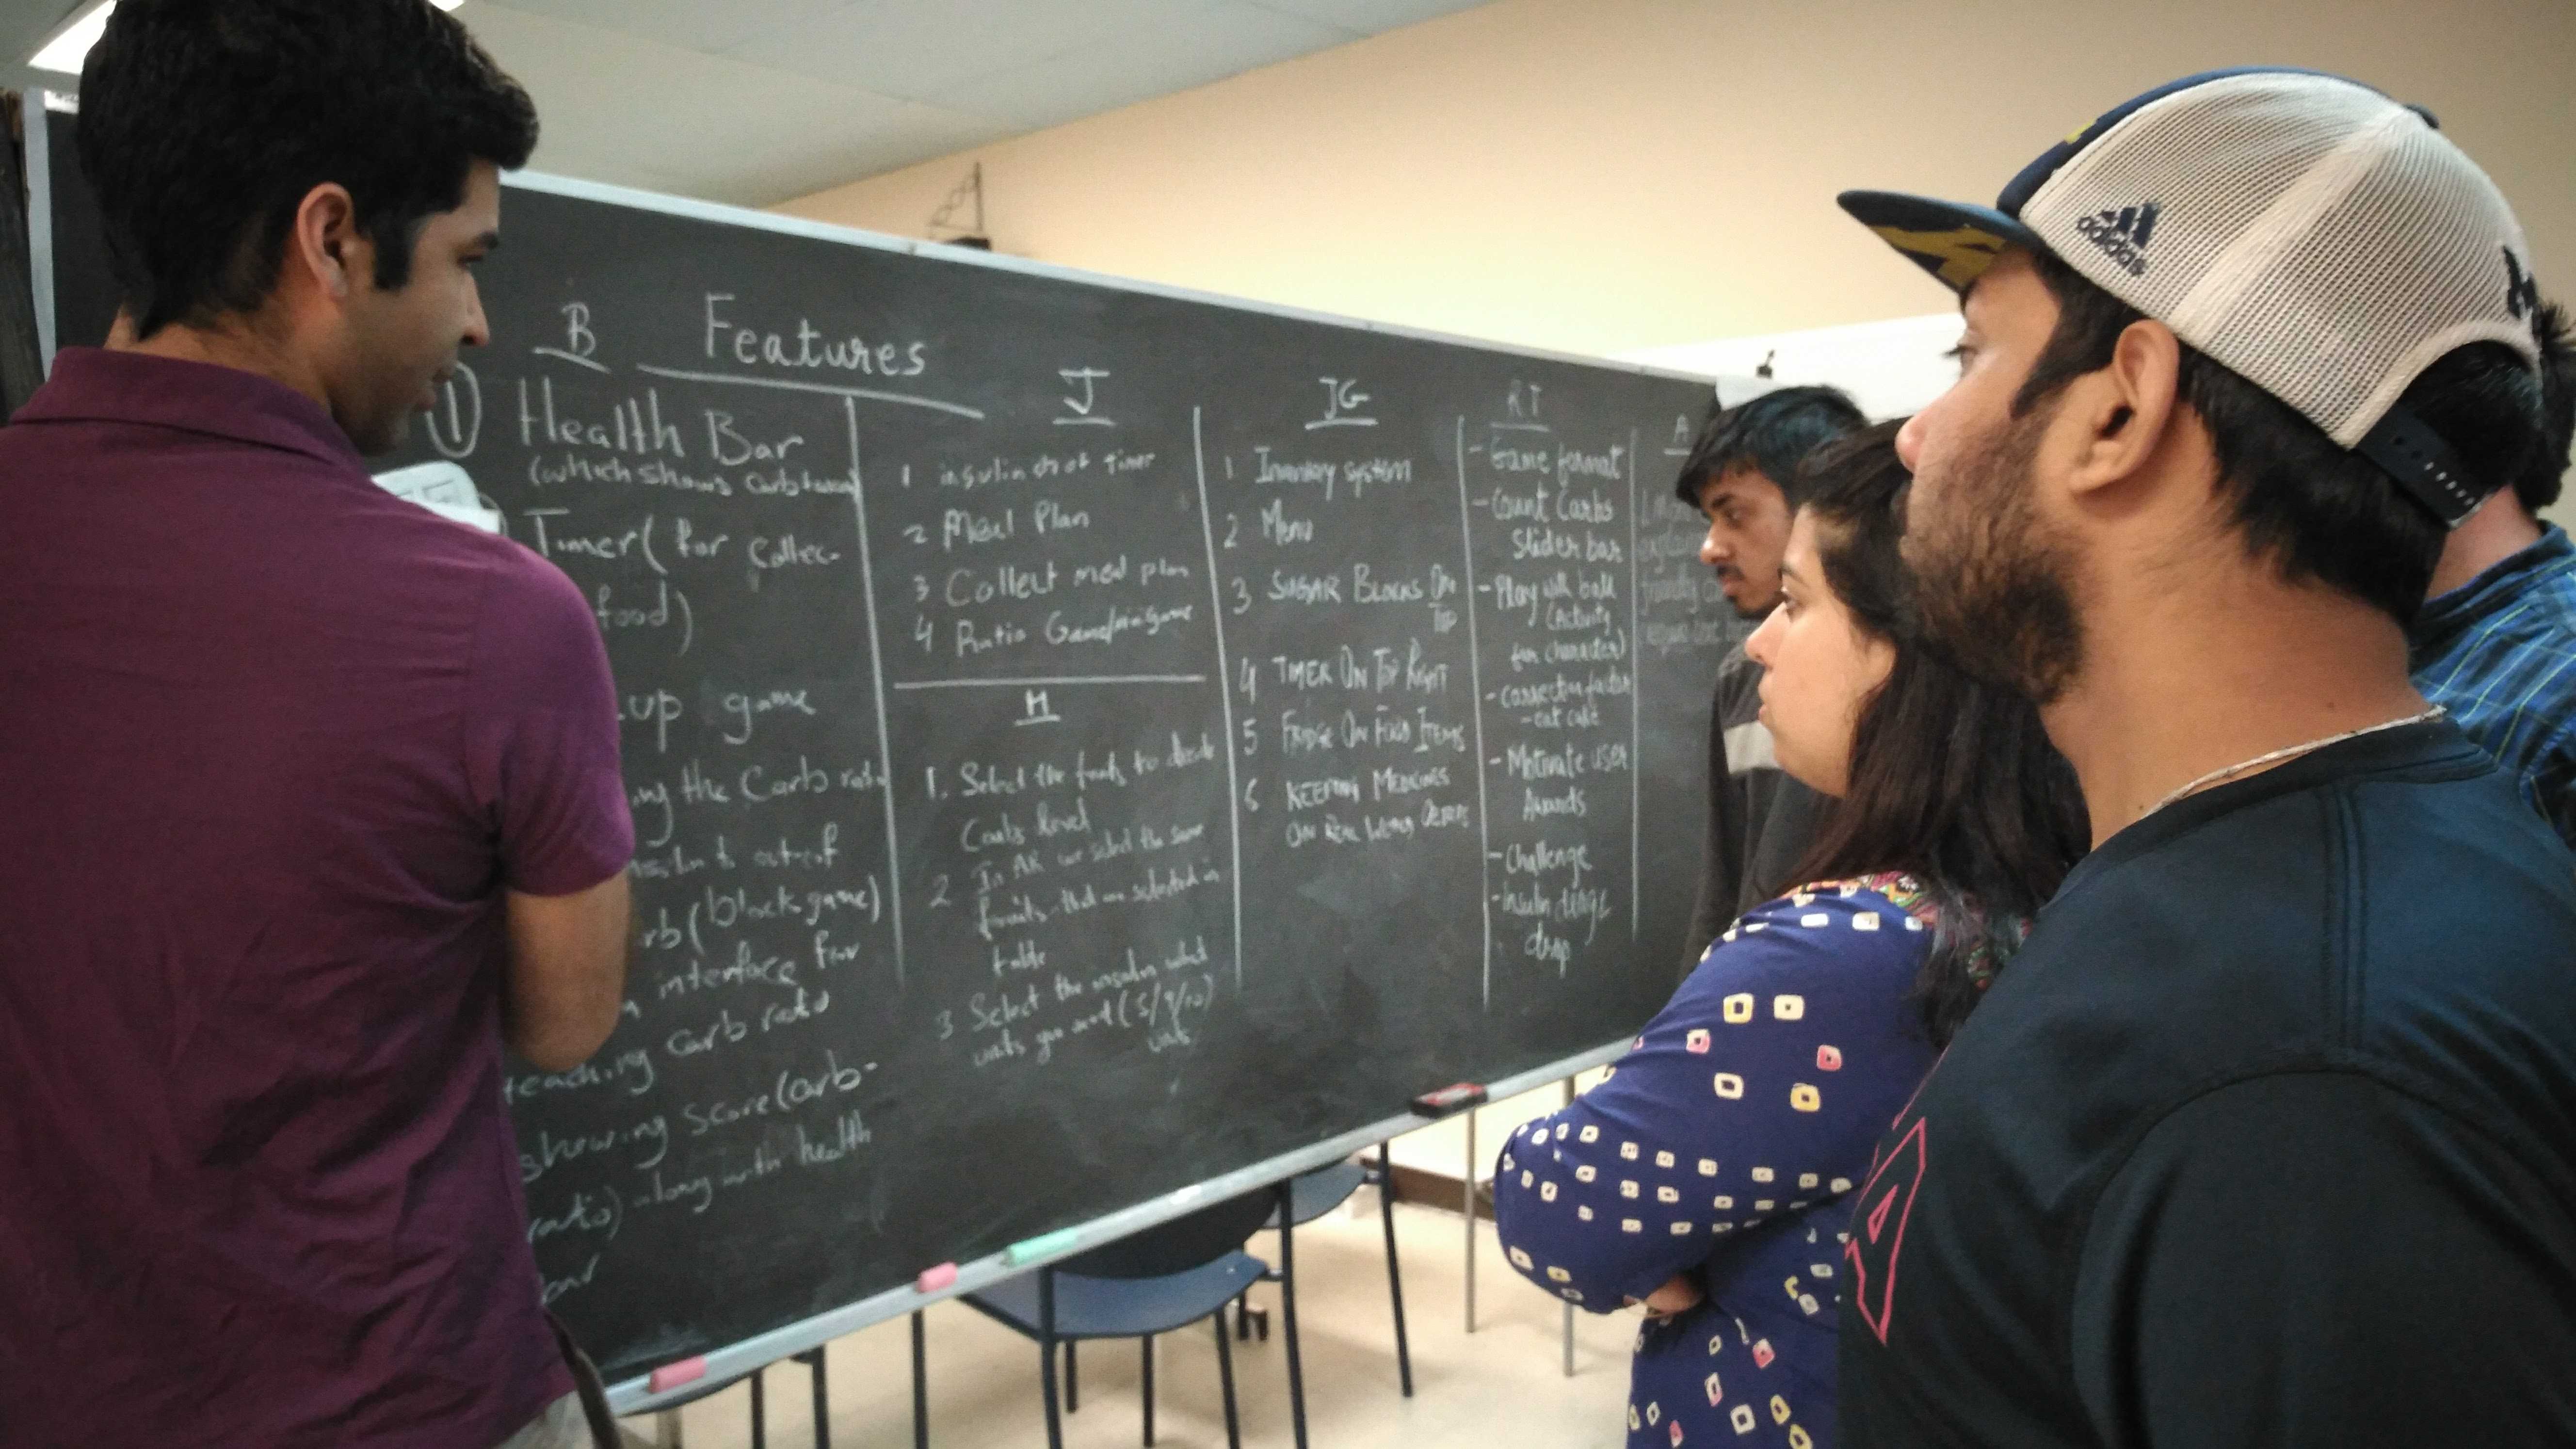 B
Features
1 Health Bar
(which shows carb
Timer (for collec-
food)
up game
ing the Carb ratio
out of
rb (blocks game)
interface for
teaching carb ratio
showing score (carb-
ratio) along with health
bar
J
1 insulin shot timer
2 Meal Plan
3 Collect meal plan
4 Ratio Game/minigame
H
1. Select the fruits to decide
Carbs level
2 In AR we select the same
fruits that are selected in
table
3 Select the insulin what
units you want (5/9/10)
units
JG
1 Inventory system
2 Menu
3 SUGAR BLOCKS ON
TOP
4 TIMER ON TOP RIGHT
5 FRIDGE ON FOOD ITEMS
6 KEEPING MEDICINES
ON REAL WORLD OBJECTS
RT
- Game format
- Count Carbs
Slider bar
- Play with ball
(Activity
for character)
- correction factor
- eat cake
- Motivate user
Awards
- Challenge
- insulin
drop
A
1.
friendly
adidas